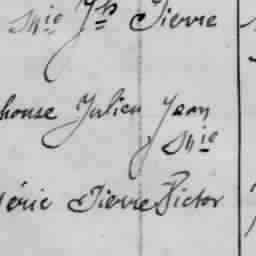 Mie Jh Pierre
house Julien Jean
Mie
éric Pierre Victor